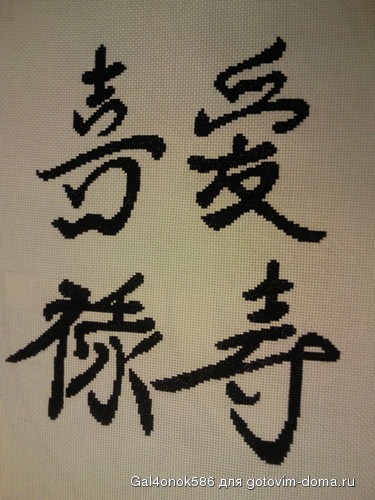 喜爱
禄寿
Gal4onok586 для gotovim-doma.ru